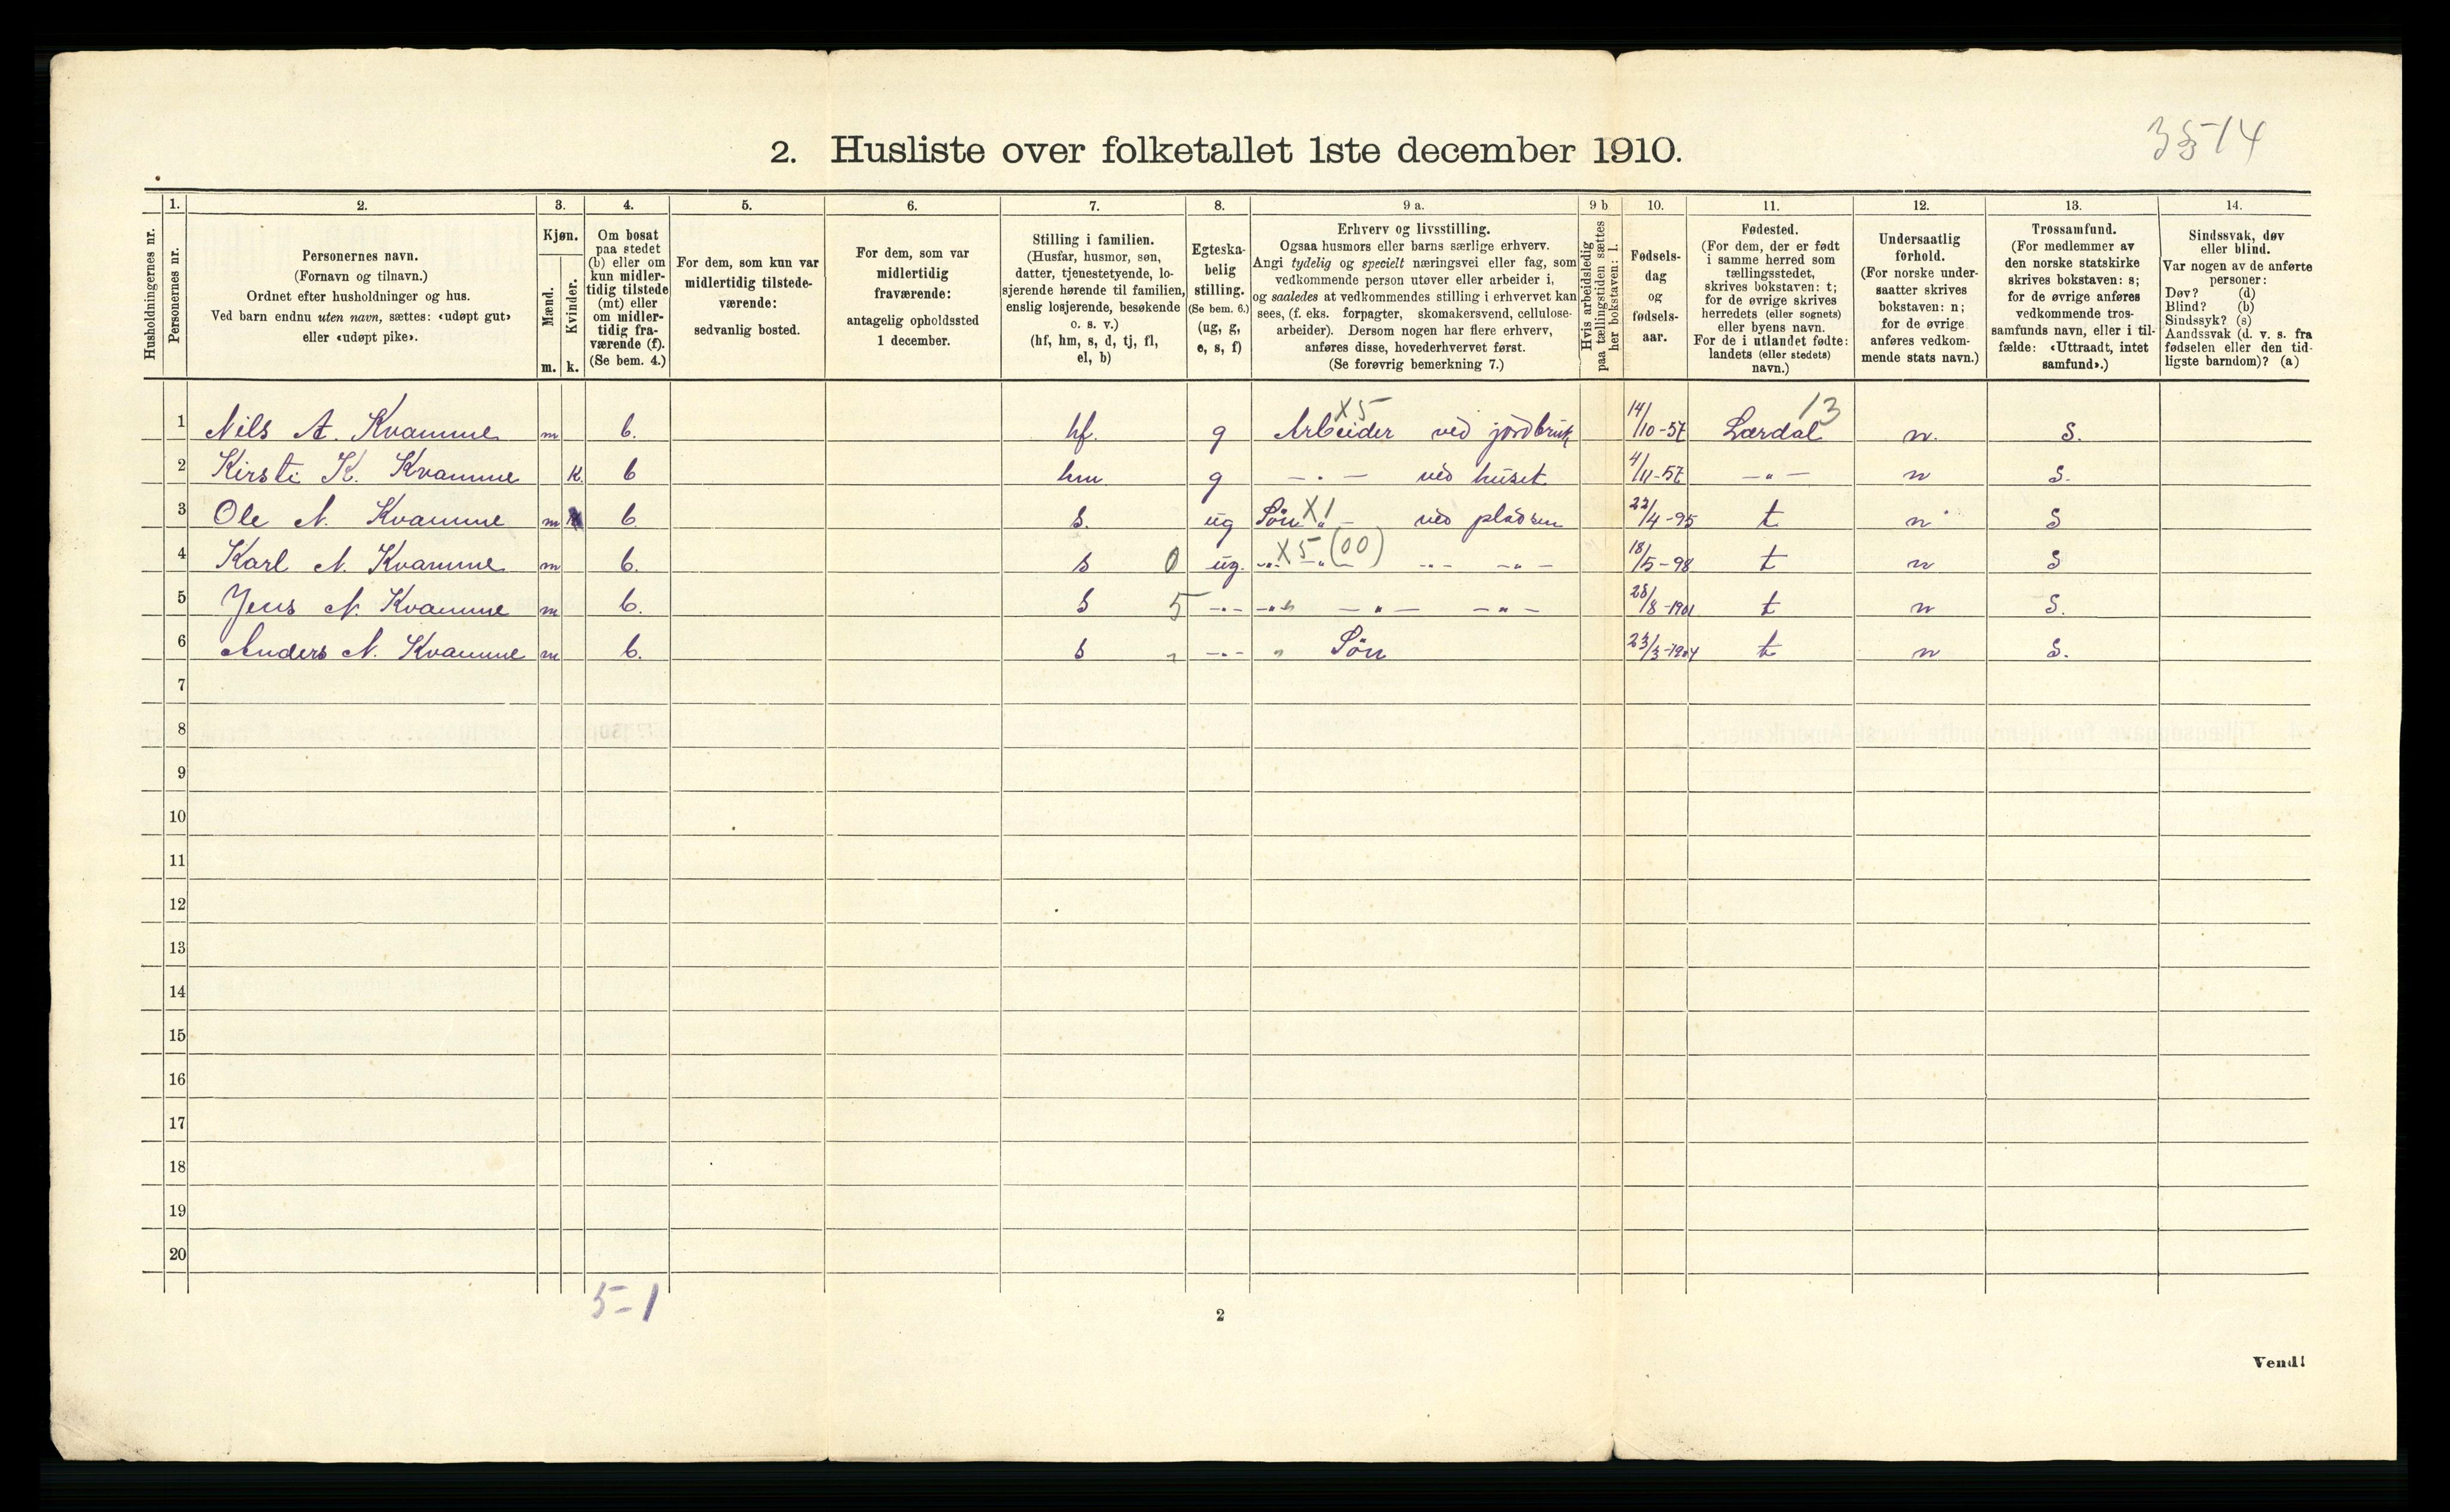 3514
2. Husliste over folketallet 1ste december 1910.
1. 2. 3. 4. 5. 6. 7. 8. 9 a. 9 b 10. 11. 12. 13. 14.
Husholdningernes nr.
Personernes nr.
Personernes navn.
(Fornavn og tilnavn.)
Ordnet efter husholdninger og hus.
Ved barn endnu uten navn, sættes: «udøpt gut»
eller «udøpt pike».
Kjøn.
Mænd.
Kvinder.
m. k.
Om bosat
paa stedet
(b) eller om
kun midler-
tidig tilstede
(mt) eller
om midler-
tidig fra-
værende (f).
(Se bem. 4.)
For dem, som kun var
midlertidig tilstede-
værende:
sedvanlig bosted.
For dem, som var
midlertidig
fraværende:
antagelig opholdssted
1 december.
Stilling i familien.
(Husfar, husmor, søn,
datter, tjenestetyende, lo-
sjerende hørende til familien,
enslig losjerende, besøkende
o. s. v.)
(hf, hm, s, d, tj, fl,
el, b)
Egteska-
belig
stilling.
(Se bem. 6.)
(ug, g,
e, s, f)
Erhverv og livsstilling.
Ogsaa husmors eller barns særlige erhverv.
Angi tydelig og specielt næringsvei eller fag, som
vedkommende person utøver eller arbeider i,
og saaledes at vedkommendes stilling i erhvervet kan
sees, (f. eks. forpagter, skomakersvend, cellulose-
arbeider). Dersom nogen har flere erhverv,
anføres disse, hovederhvervet først.
(Se forøvrig bemerkning 7.)
Hvis arbeidsledig
paa tællingstiden sættes
her bokstaven: l.
Fødsels-
dag
og
fødsels-
aar.
Fødested.
(For dem, der er født
i samme herred som
tællingsstedet,
skrives bokstaven: t;
for de øvrige skrives
herredets (eller sognets)
eller byens navn.
For de i utlandet fødte:
landets (eller stedets)
navn.)
Undersaatlig
forhold.
(For norske under-
saatter skrives
bokstaven: n;
for de øvrige
anføres vedkom-
mende stats navn.)
Trossamfund.
(For medlemmer av
den norske statskirke
skrives bokstaven: s;
for de øvrige anføres
vedkommende tros-
samfunds navn, eller i til-
fælde: «Uttraadt, intet
samfund».)
Sindssvak, døv
eller blind.
Var nogen av de anførte
personer:
Døv? (d)
Blind? (b)
Sindssyk? (s)
Aandssvak (d. v. s. fra
fødselen eller den tid-
ligste barndom)? (a)
X5 13
1 Nils A. Kvamme m b. hf. g Arbeider ved jordbruk 14/10-57 Lærdal n. S.
2 Kirsti K. Kvamme K. b hm g -"- ved huset 4/11-57 -"- n S.
3 Ole N. Kvamme m b s. ug Søn X1 " - ved pladsen 22/4-95 t n S
4 Karl N. Kvamme m b. s 0 ug. -"- X5 (00) -"- -"- -"- 18/5-98 t n S
5 Jens N. Kvamme m b. s 5 -"- -"- -"- -"- 28/8-1901 t n S.
6 Anders N. Kvamme m b. s " -"- " Søn 23/3-1904 t n S.
7
8
9
10
11
12
13
14
15
16
17
18
19
20
5-1
2
Vend!